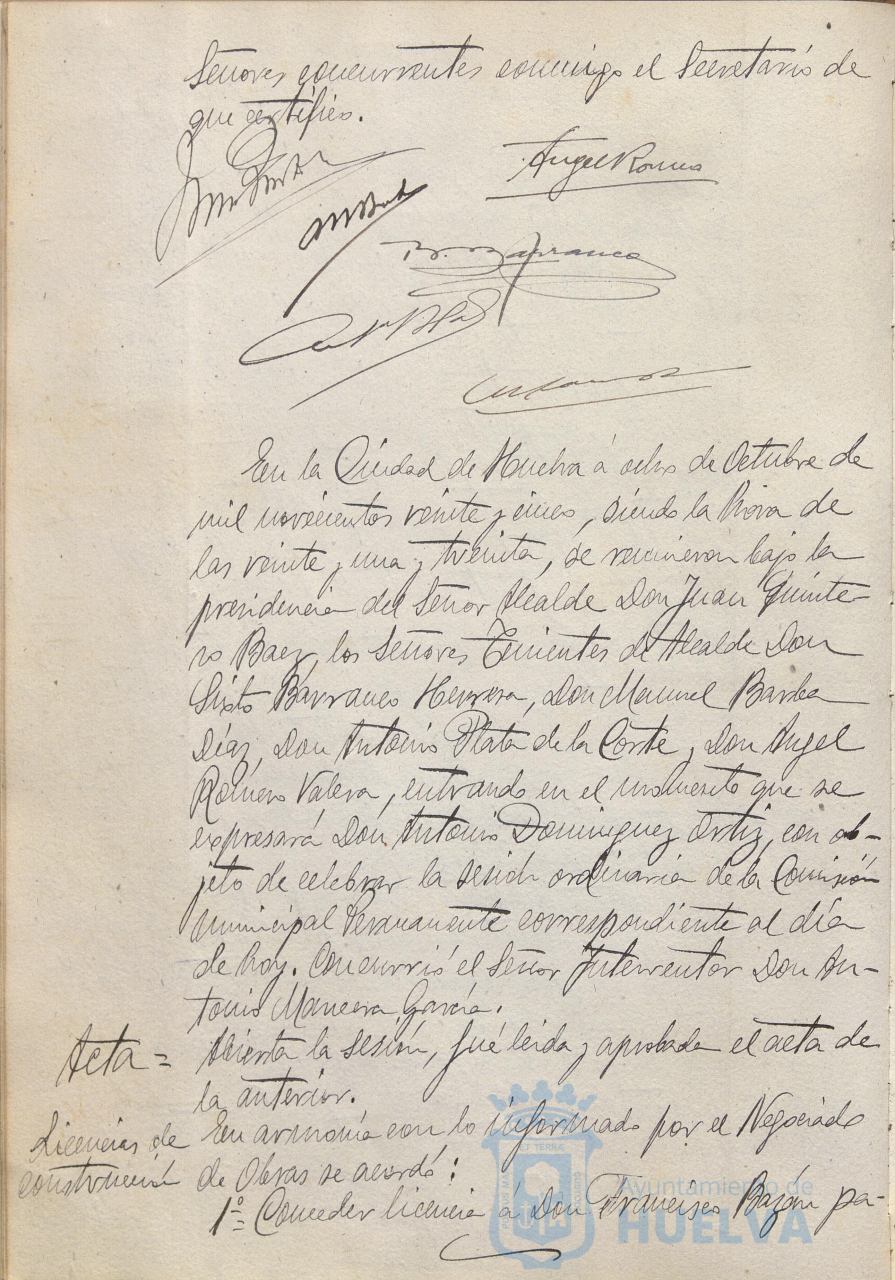 Señores concurrentes conmigo el Secretario de
que certifico.
Angel Romero
B. Barranco
En la Ciudad de Huelva á ocho de Octubre de
mil novecientos veinte y cinco, siendo la hora de
las veinte y una y treinta, se reunieron bajo la
presidencia del Señor Alcalde Don Juan Quinte-
ro Baez, los Señores Tenientes de Alcalde Don
Sixto Barranco Herrera, Don Manuel Barba
Díaz, Don Antonio Plata de la Corte, Don Angel
Romero Valera, entrando en el momento que se
expresará Don Antonio Dominguez Ortiz, con ob-
jeto de celebrar la sesión ordinaria de la Comisión
Municipal Permanente correspondiente al día
de hoy. Concurrió el Señor Interventor Don An-
tonio Mancera García.
Acta = Abierta la sesión, fué leida y aprobada el acta de
la anterior.
Licencias de En armonía con lo informado por el Negociado
construcción de Obras se acordó:
1º Conceder licencia á Don Francisco Bazán pa-
Ayuntamiento de
HUELVA